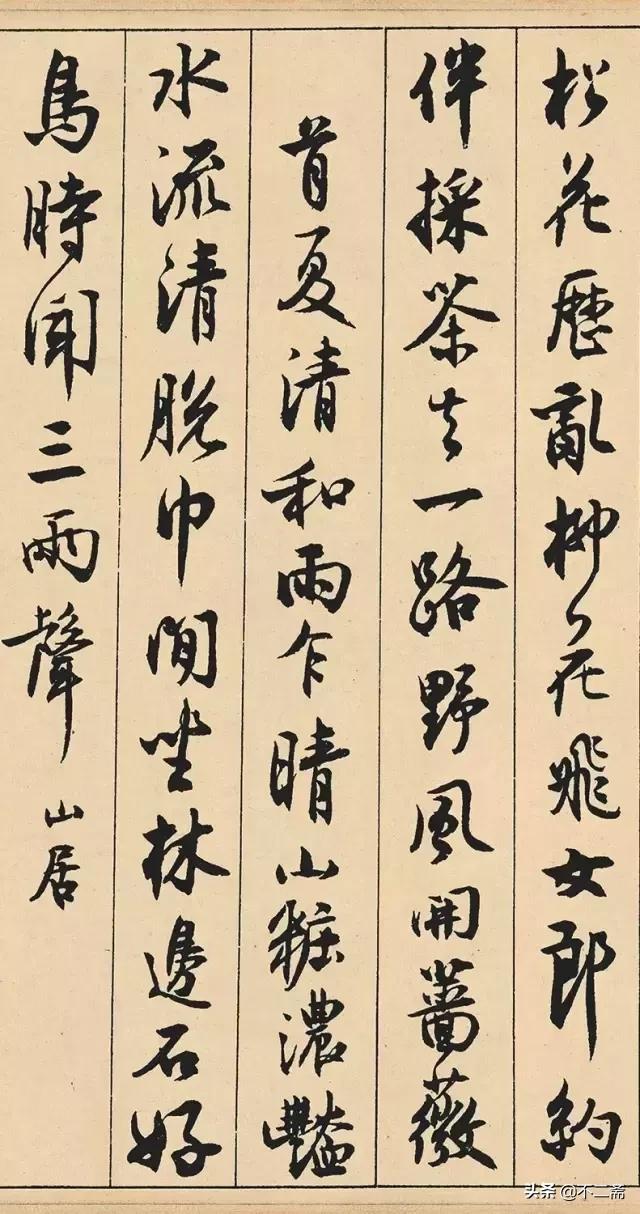 松花歷亂柳花飛女郎約
伴採茶去一路野風開薔薇
首夏清和雨乍晴山粧濃豔
水流清脫巾閒坐林邊石好
鳥時聞三兩聲 山居
头条 @不二斋